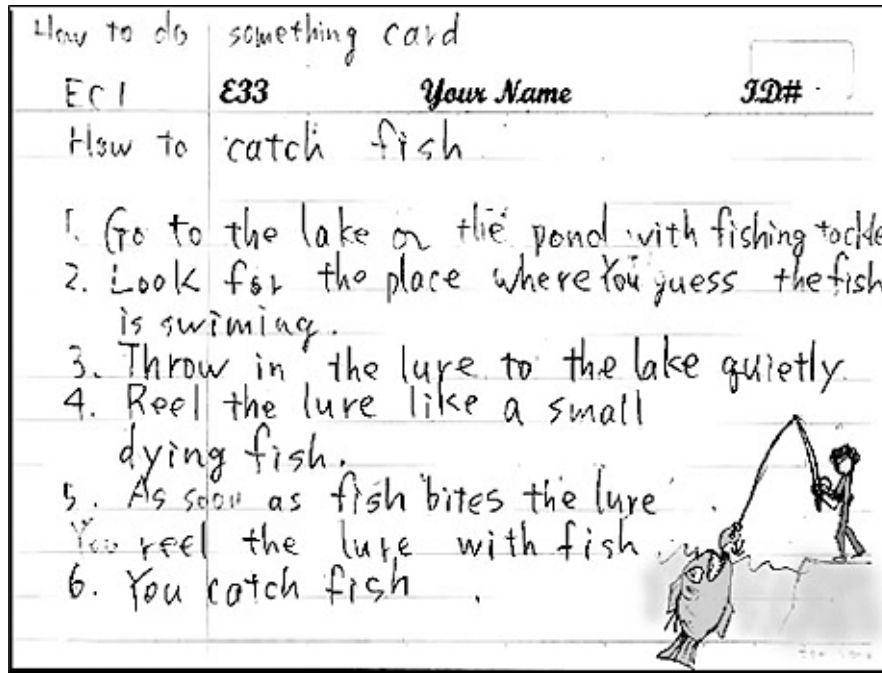 How to do something card
EC1 E33 Your Name ID#
How to catch fish
1. Go to the lake or the pond with fishing tackle
2. Look for the place where You guess the fish
is swiming.
3. Throw in the lure to the lake quietly.
4. Reel the lure like a small
dying fish.
5. As soon as fish bites the lure
You reel the lure with fish
6. You catch fish.